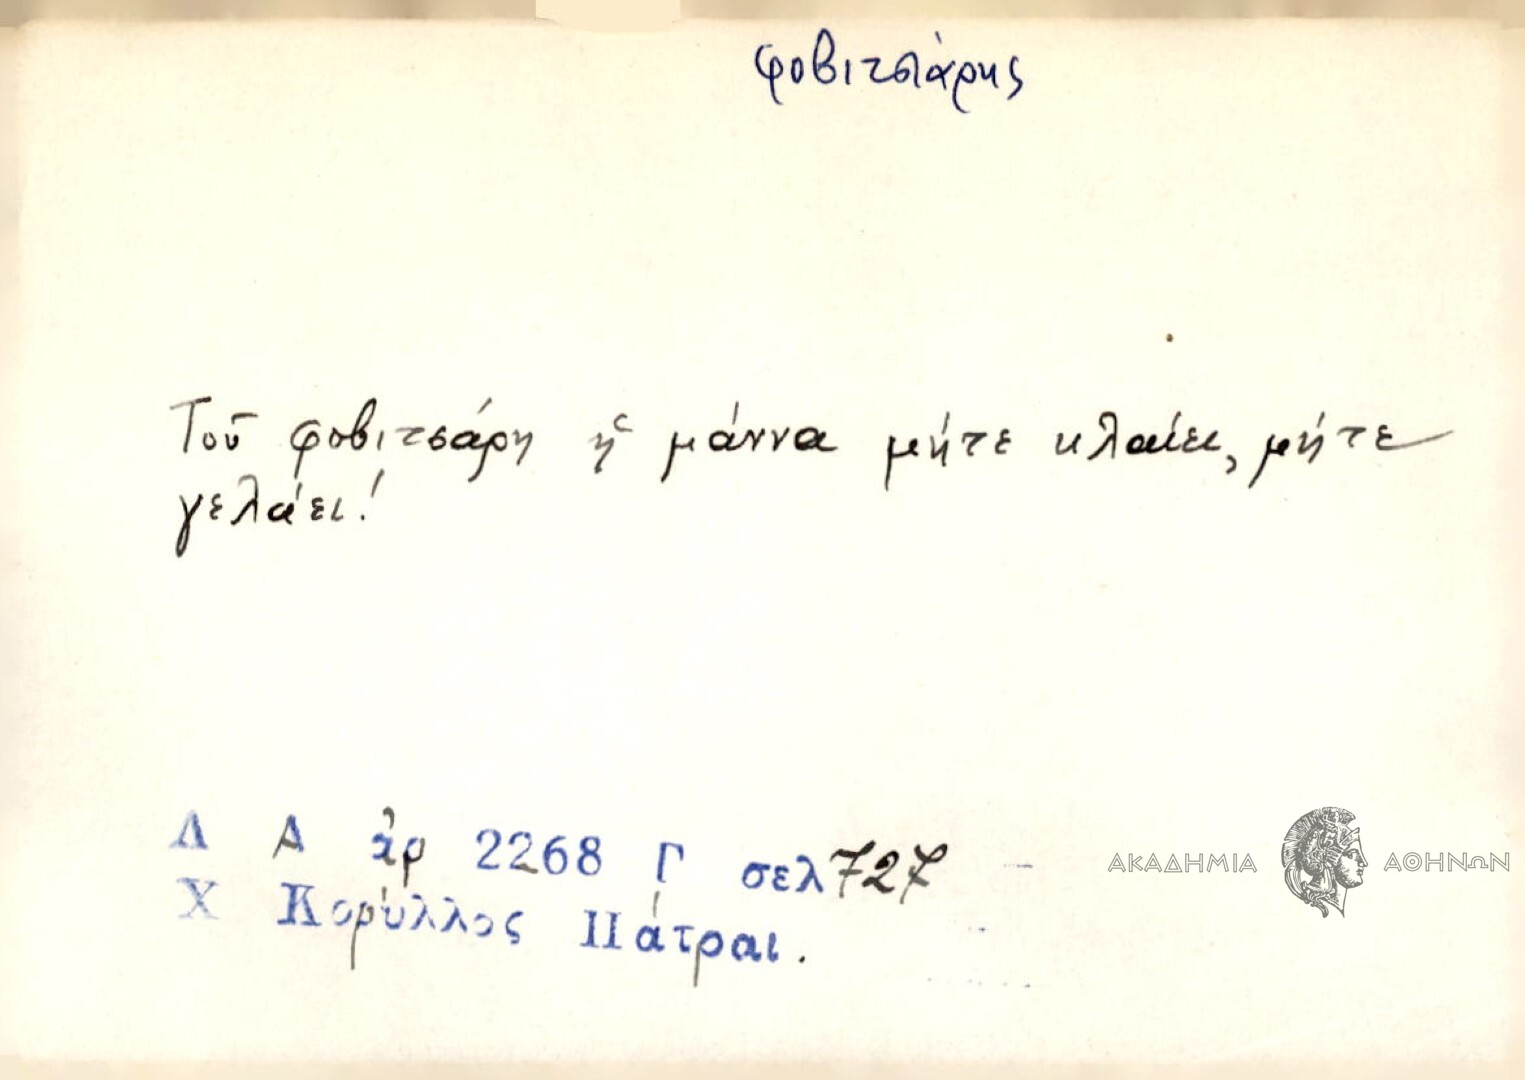 φοβιτσιάρης
Τοῦ φοβιτσάρη ἡ μάννα μήτε κλαίει, μήτε
γελάει!
Λ Α ἀρ 2268 Γ σελ 727
Χ Κορύλλος Πάτραι.
ΑΚΑΔΗΜΙΑ ΑΘΗΝΩΝ